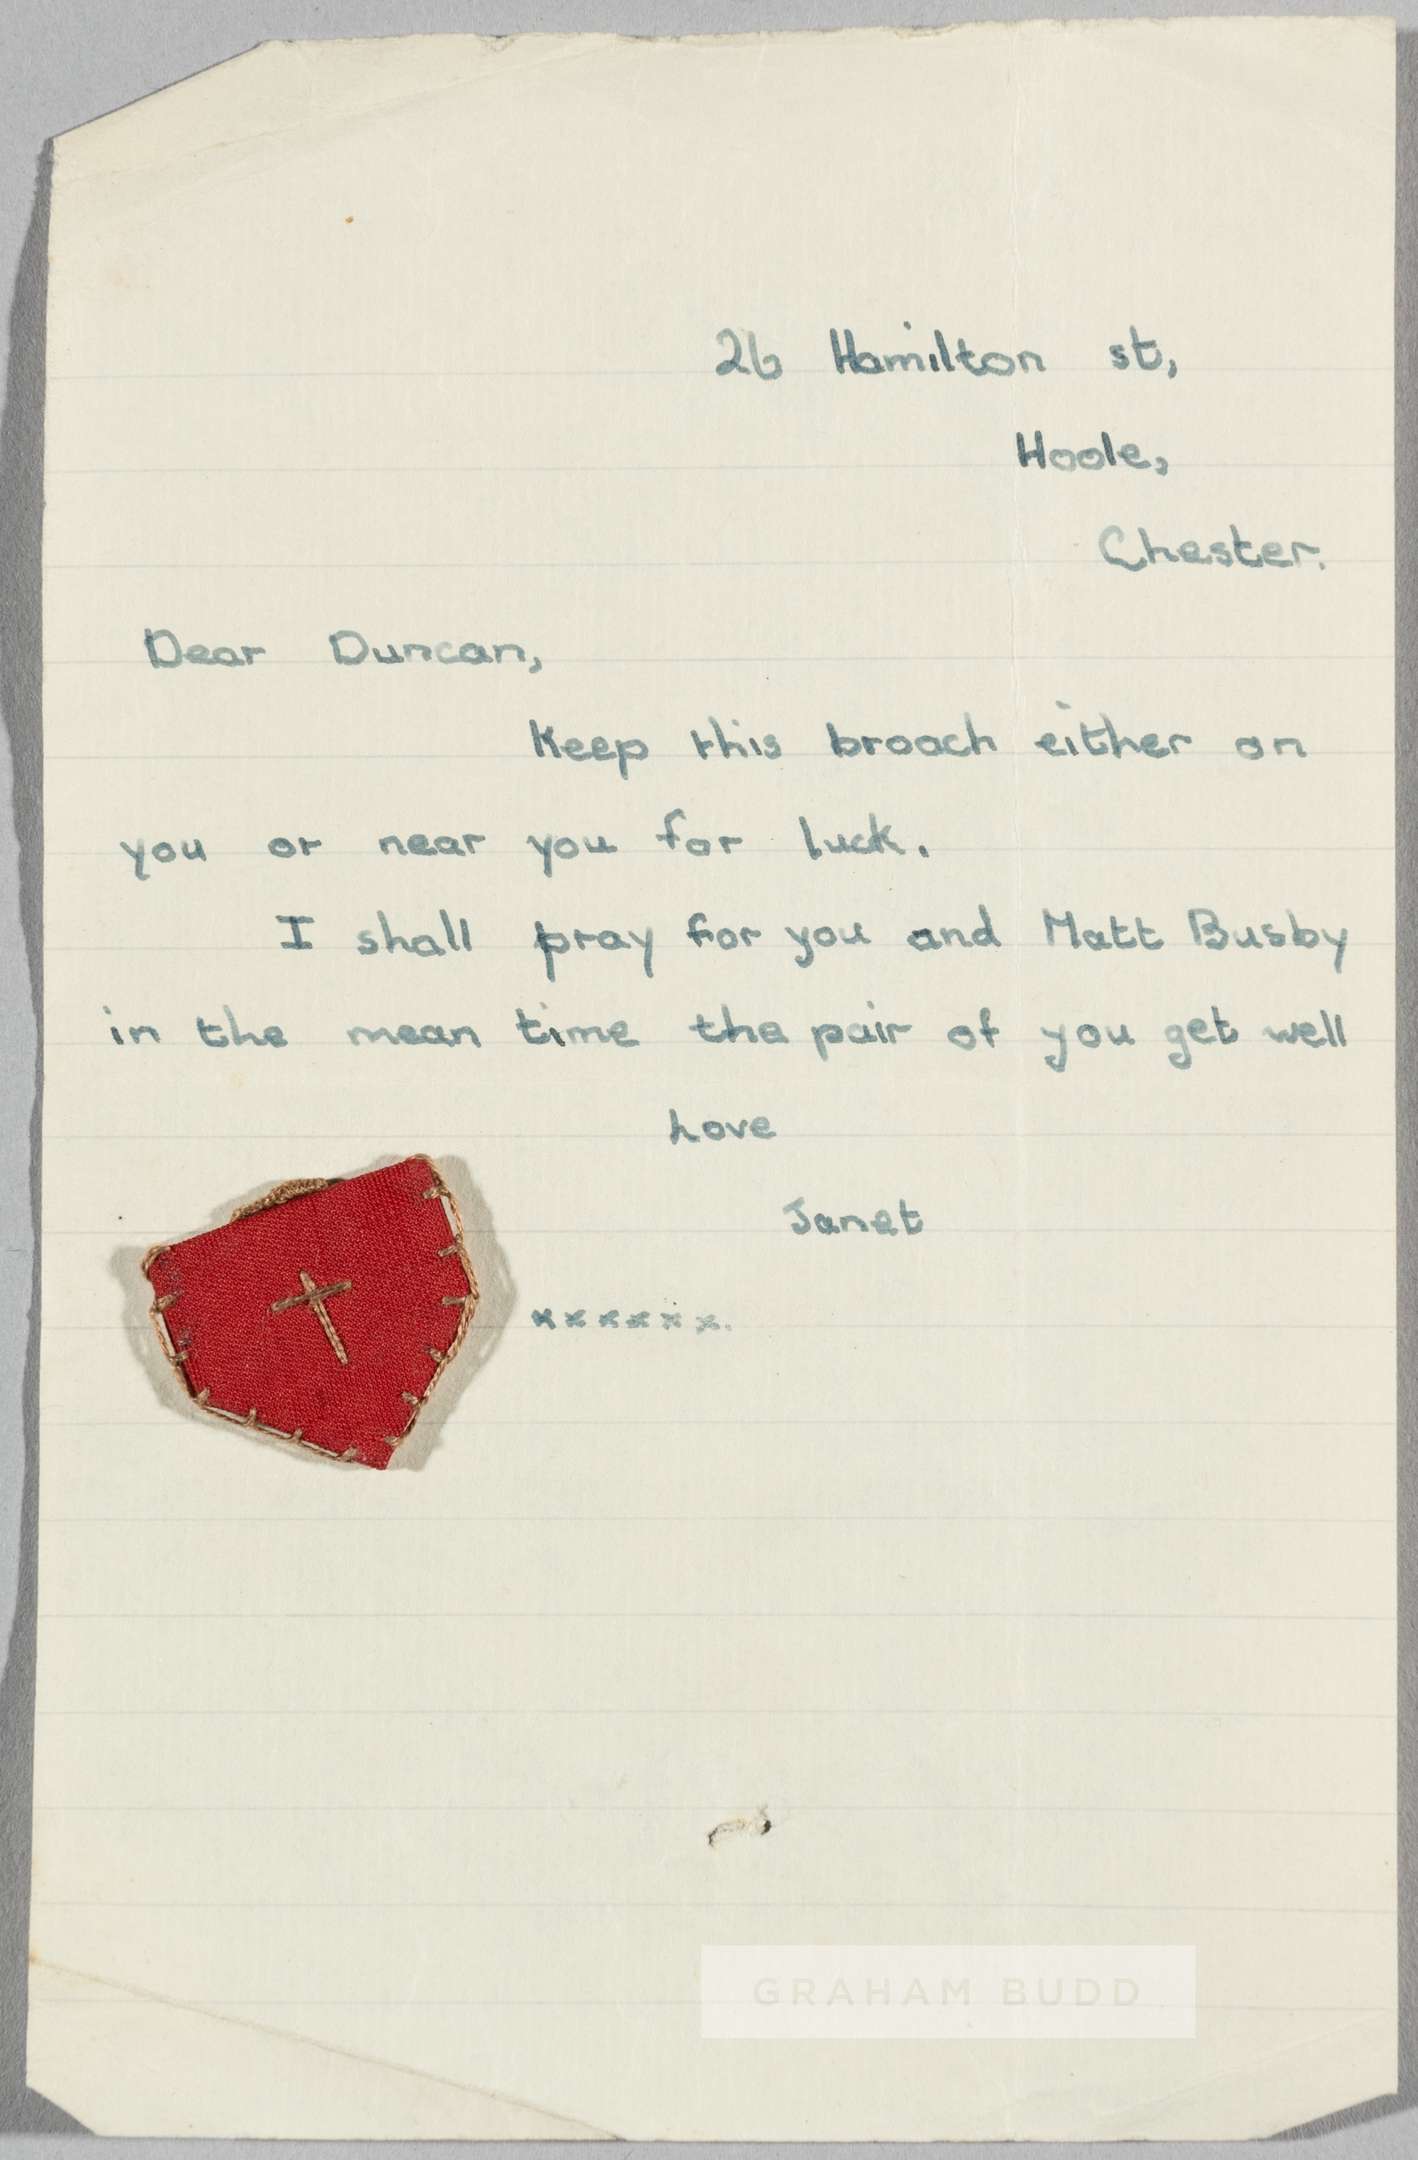 26 Hamilton st,
Hoole,
Chester.
Dear Duncan,
Keep this broach either on
you or near you for luck.
I shall pray for you and Matt Busby
in the mean time the pair of you get well
Love
Janet
xxxxxx.
GRAHAM BUDD